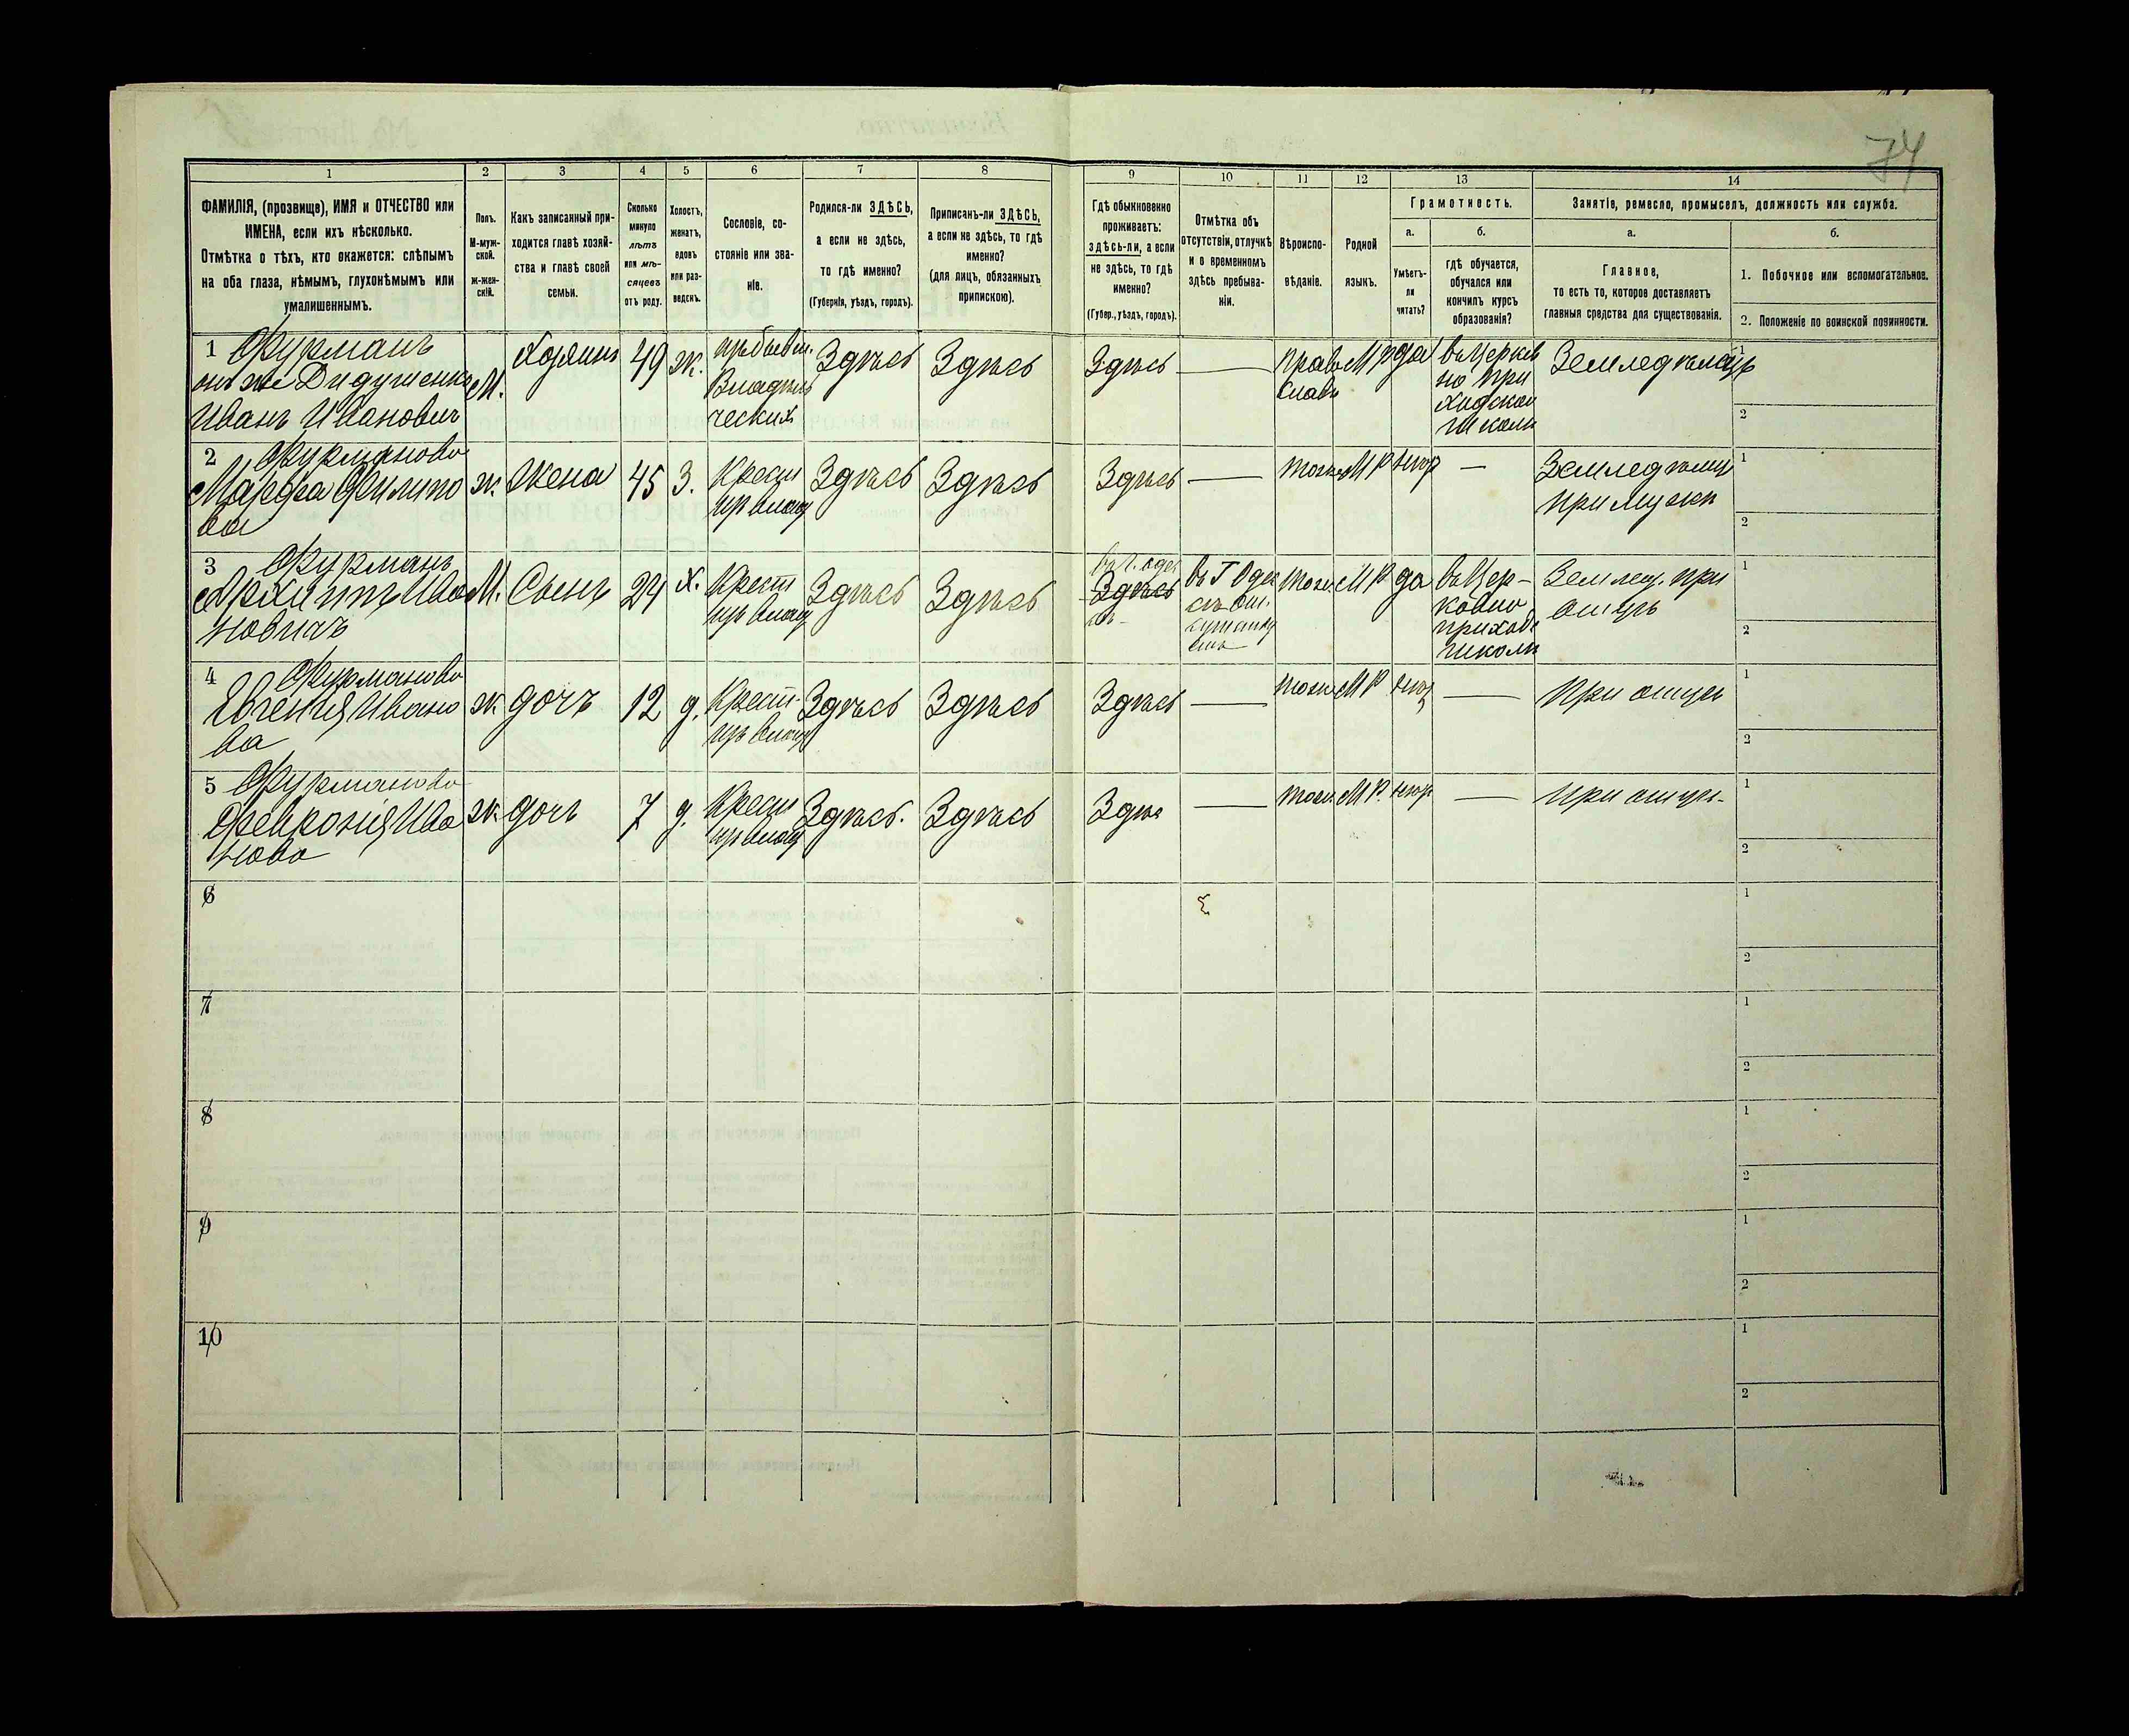 74
1
2
3
4
5
6
7
8
9
10
11
12
13
14
ФАМИЛІЯ, (прозвище), ИМЯ и ОТЧЕСТВО или
ИМЕНА, если ихъ нѣсколько.
Отмѣтка о тѣхъ, кто окажется: слѣпымъ
на оба глаза, нѣмымъ, глухонѣмымъ или
умалишеннымъ.
Полъ.
М-муж-
ской.
ж-жен-
скій.
Какъ записанный при-
ходится главѣ хозяй-
ства и главѣ своей
семьи.
Сколько
минуло
лѣтъ
или мѣ-
сяцевъ
отъ роду.
Холостъ,
женатъ,
вдовъ
или раз-
веденъ.
Сословіе, со-
стояніе или зва-
ніе.
Родился-ли ЗДѢСЬ,
а если не здѣсь,
то гдѣ именно?
(Губернія, уѣздъ, городъ).
Приписанъ-ли ЗДѢСЬ,
а если не здѣсь, то гдѣ
именно?
(для лицъ, обязанныхъ
припискою).
Гдѣ обыкновенно
проживаетъ:
здѣсь-ли, а если
не здѣсь, то гдѣ
именно?
(Губер., уѣздъ, городъ).
Отмѣтка объ
отсутствіи, отлучкѣ
и о временномъ
здѣсь пребыва-
ніи.
Вѣроиспо-
вѣданіе.
Родной
языкъ.
Грамотность.
а.
Умѣетъ-
ли
читать?
б.
гдѣ обучается,
обучался или
кончилъ курсъ
образованія?
Занятіе, ремесло, промыселъ, должность или служба.
а.
Главное,
то есть то, которое доставляетъ
главныя средства для существованія.
б.
1. Побочное или вспомогательное.
2. Положеніе по воинской повинности.
1 Фурманъ
онъ же Дидушенко
Иванъ Ивановичъ
М.
Хозяинъ
49
ж.
Владѣль
ческихъ
Здѣсь
Здѣсь
Здѣсь
право
слав
М Р
да
въ Церков
но при
ходской
школѣ
Земледѣлецъ
1
2
2 Фурманова
Марфа Филипо
ва
ж.
Жена
45
З.
Крест
изъ влад
Здѣсь
Здѣсь
Здѣсь
тоже
М Р
Земледѣлец
при мужѣ
1
2
3 Фурманъ
Архипъ Ива
новичъ
М.
Сынъ
24
х.
Крест
изъ влад
Здѣсь
Здѣсь
въ г. Одес
Здѣсь
въ Г Одес
тоже
М Р
да
въ Цер-
ковно
приход
школѣ
Землед. при
отцѣ
1
2
4 Фурманова
Евгенія Ивано
ва
ж
дочь
12
д.
Крест.
изъ влад
Здѣсь
Здѣсь
Здѣсь
тоже
М Р
При отцѣ
1
2
5 Фурманова
Февронія Ива
нова
ж.
дочь
7
д.
Крест
изъ влад
Здѣсь.
Здѣсь
Здѣс
тоже
М Р.
при отцѣ.
1
2
6
1
2
7
1
2
8
1
2
9
1
2
10
1
2